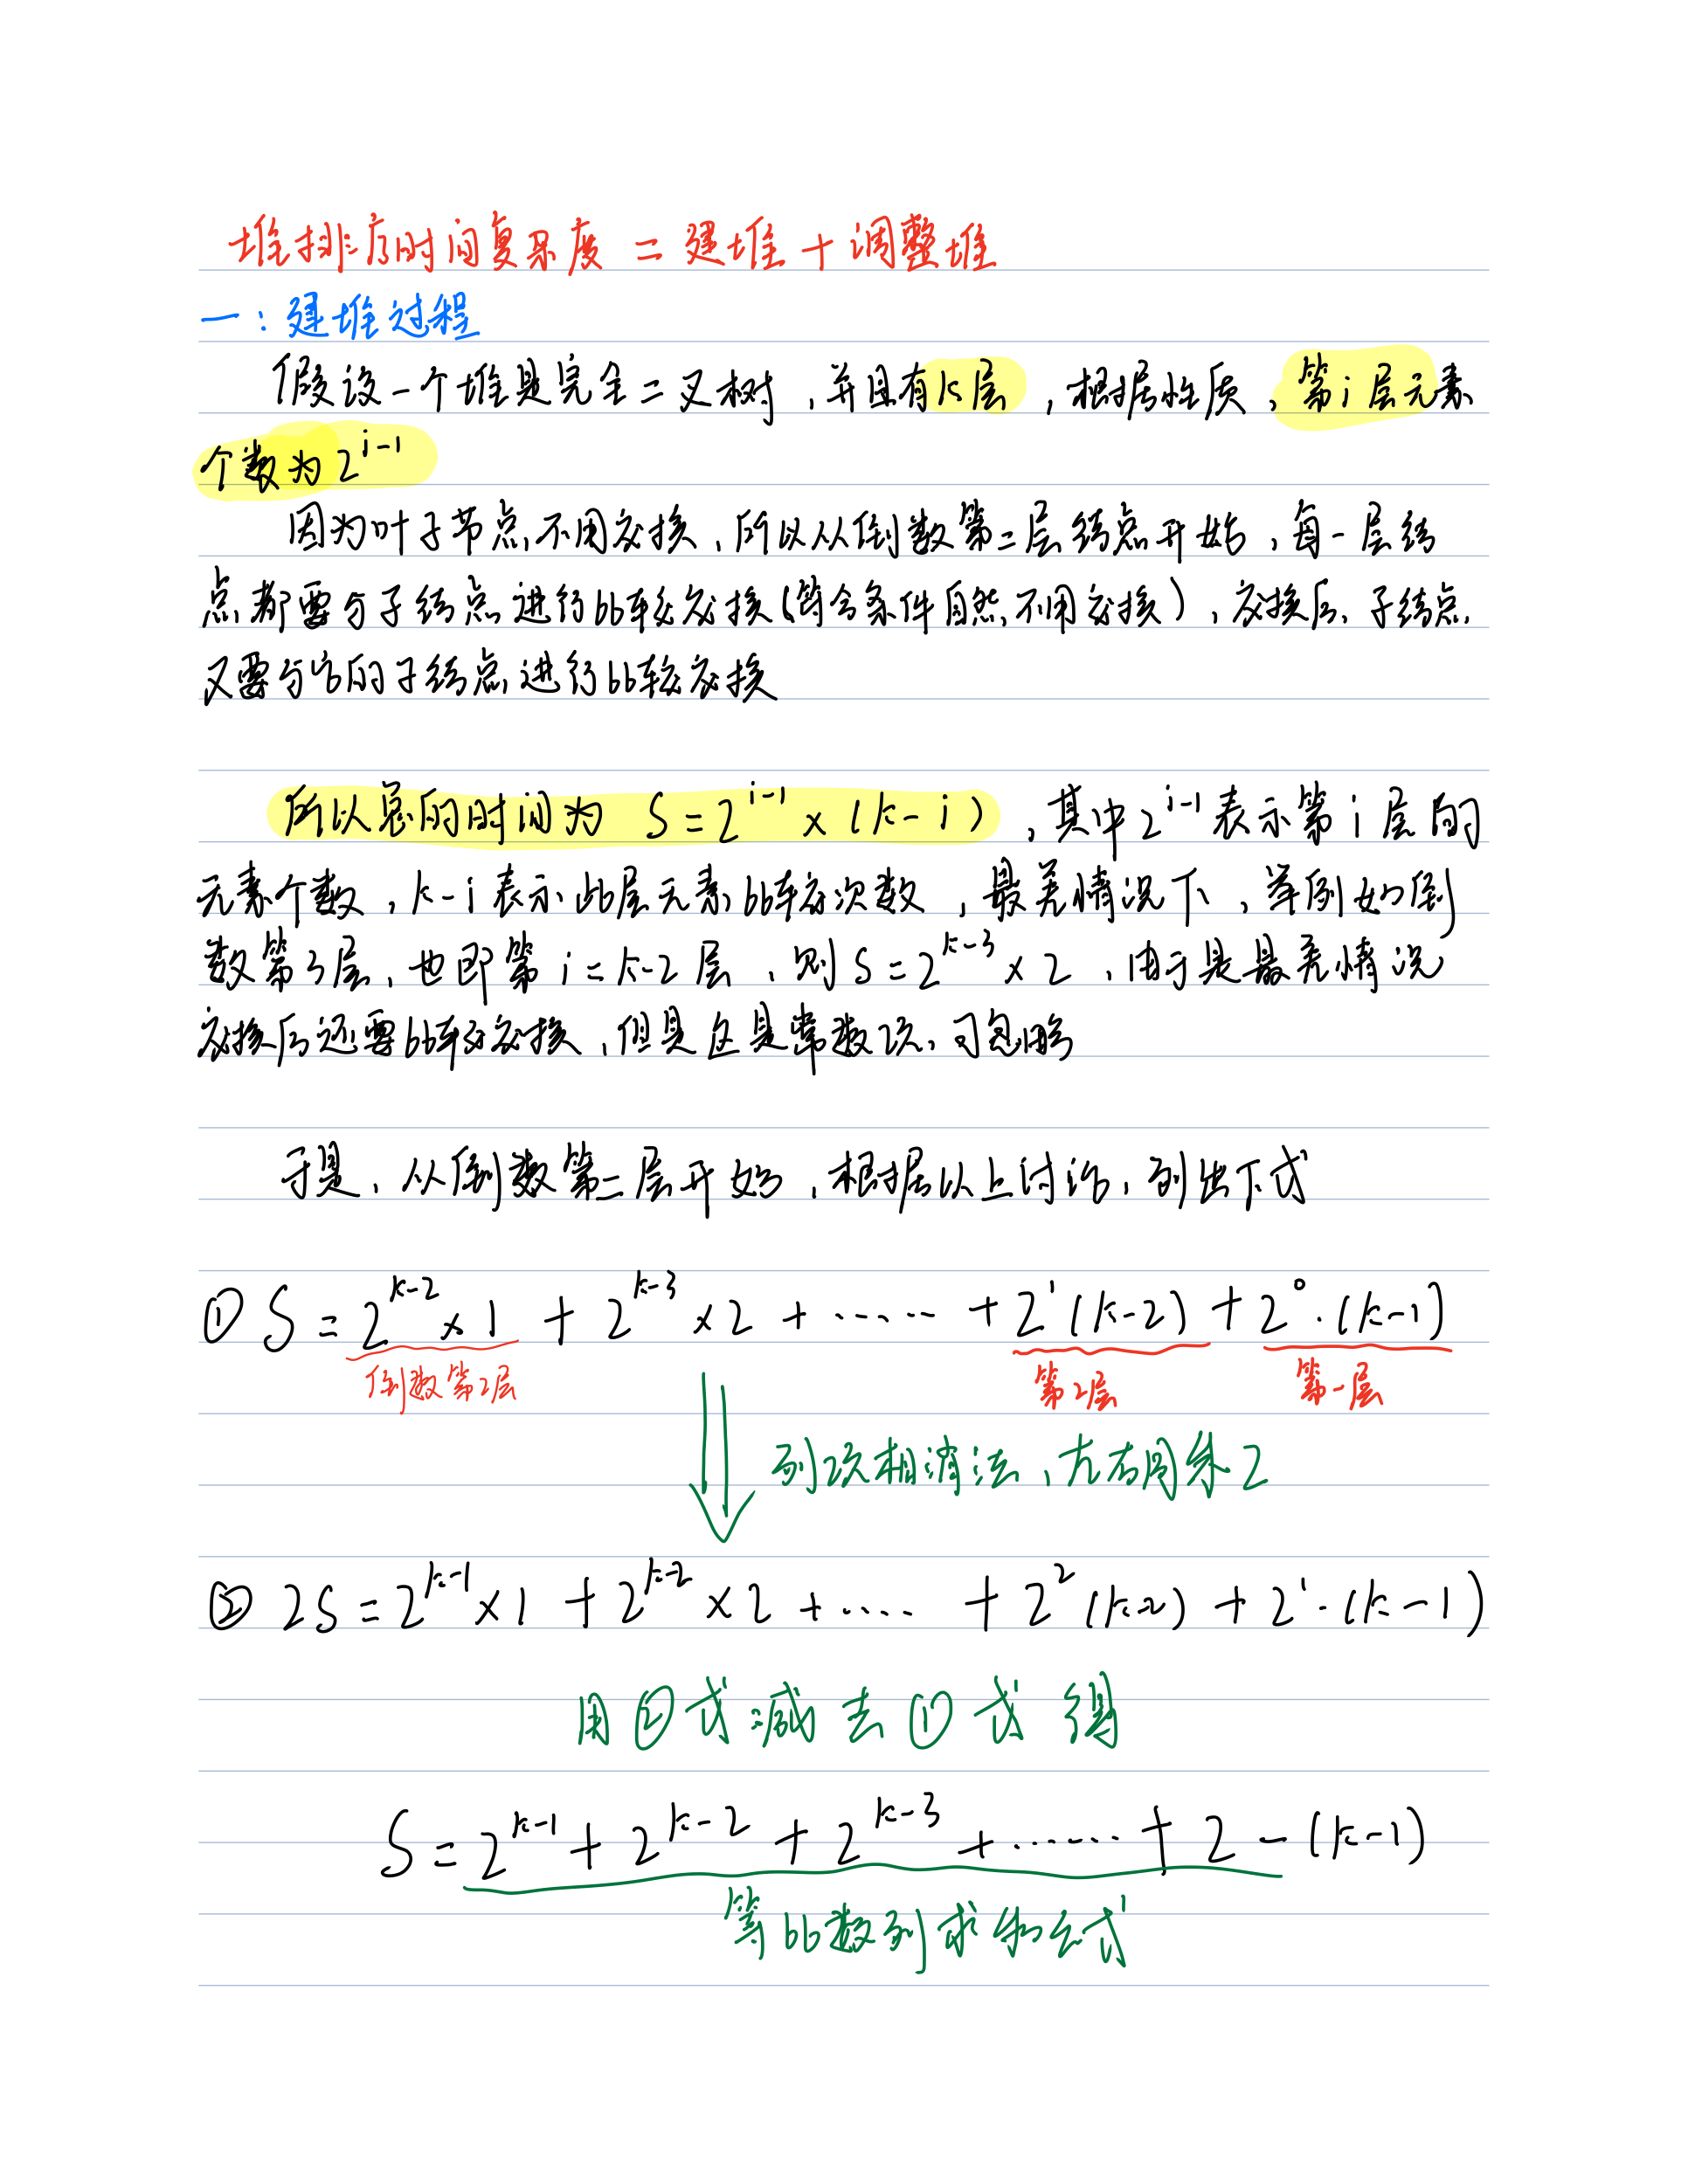 堆排序时间复杂度 = 建堆 + 调整堆
一：建堆过程
假设一个堆是完全二叉树，并且有k层，根据性质，第i层元素
个数为2^{i-1}
因为叶子节点不用交换，所以从倒数第二层结点开始，每一层结
点都要与子结点进行比较交换(符合条件自然不用交换)，交换后，子结点
又要与它的子结点进行比较交换
所以总的时间为 S=2^{i-1}×(k-i)，其中2^{i-1}表示第i层的
元素个数，k-i表示此层元素比较次数，最差情况下，举例如倒
数第3层，也即第i=k-2层，则S=2^{k-3}×2，由于是最差情况
交换后还要比较交换，但是这是常数项，可忽略
于是，从倒数第二层开始，根据以上讨论，列出下式
① S=2^{k-2}×1 + 2^{k-3}×2 + ······ + 2^1(k-2) + 2^0·(k-1)
倒数第2层 第2层 第一层
列项相消法，左右同乘2
② 2S=2^{k-1}×1 + 2^{k-2}×2 + ····· + 2^2(k-2) + 2^1·(k-1)
用②式减去①式得
S=2^{k-1}+2^{k-2}+2^{k-3}+······+2-(k-1)
等比数列求和公式